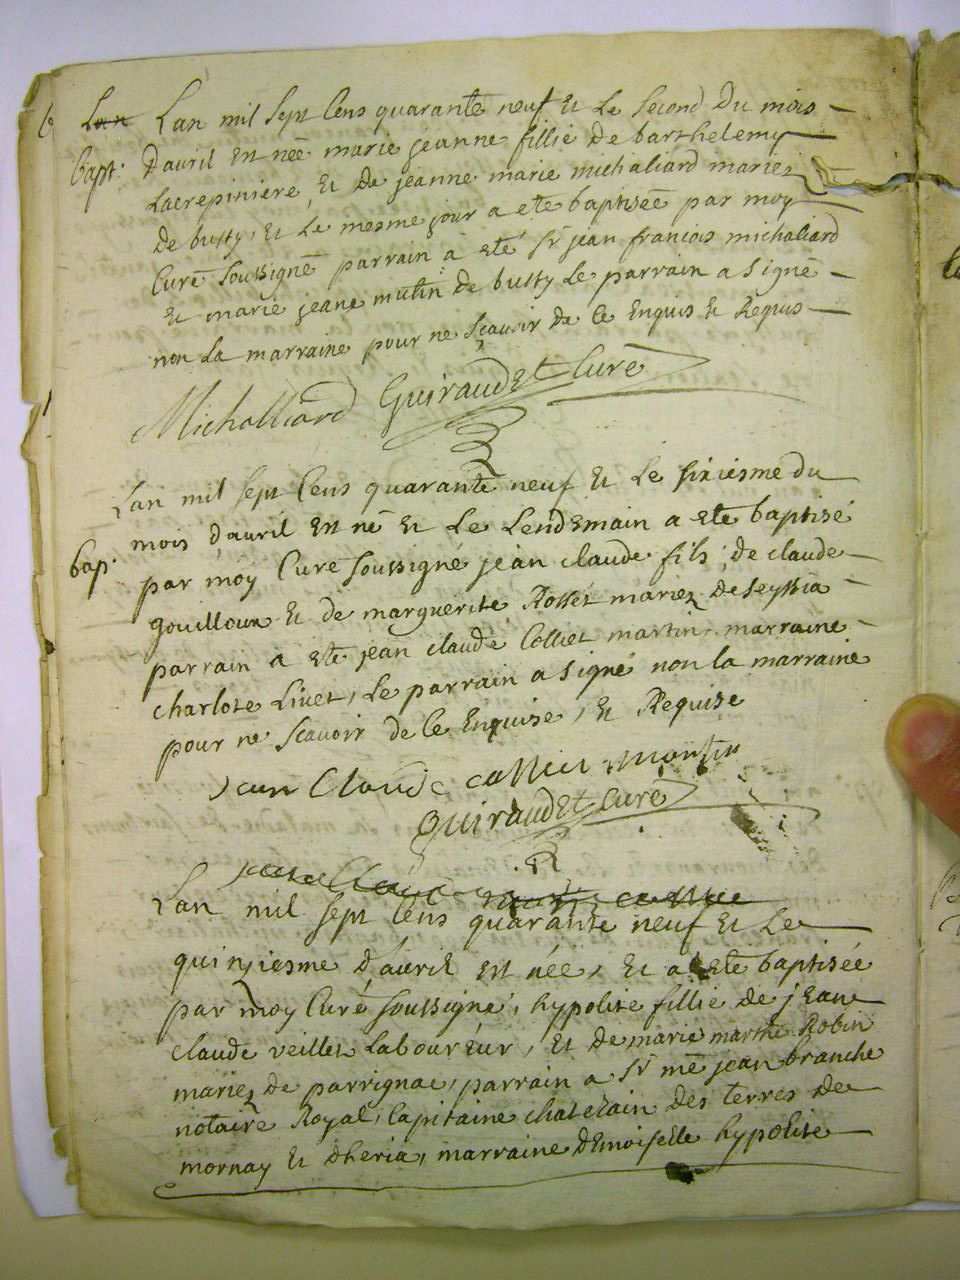 Lan Lan mil sept Cens quarante neuf Et Le second Du mois
bapt. Davril Est née marie jeanne fillie de barthelemy
Lacrepiniere, Et De jeanne marie michaliard mariez
De bussy, Et Le mesme jour a ete baptisée par moy
Curé soussigné parrain à eté sr jean francois michaliard
Et marie jeane mutin De bussy Le parrain a signé
non La marraine pour ne sçavoir De Ce Enquis Et Requis
Michalliard Guiraudet Curé
Lan mil sept Cens quarante neuf Et Le sixiesme du
mois d'avril Est né Et Le Lendemain a ete baptisé
bap. par moy Curé soussigné jean claude fils de claude
gouilloux Et de marguerite Rosset mariez De seyssia
parrain a ete jean claude Colliet martin, marraine
charlote Livet, Le parrain a signé non la marraine
pour ne scavoir de Ce Enquise, Et Requise
Jean Claude collict martin
Guiraudet Curé
Lan mil sept Cens quarante neuf Et Le
quinziesme d'avril est née, Et a ete baptisée
par moy Curé soussigné, hypolite fillie de jean
claude veillet Laboureur, Et de marie marthe Robin
mariez de parrignac, parrain a sr me jean branche
notaire Royal, Capitaine chatelain des terres de
mornay Et dheria, marraine demoiselle hypolite